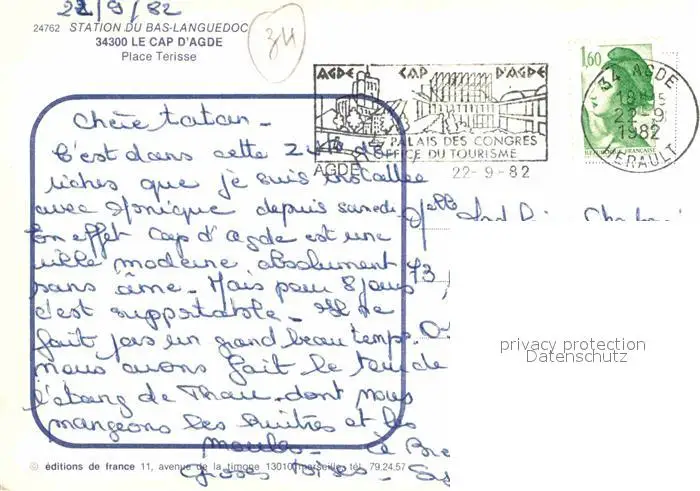 22/9/82
24762 STATION DU BAS-LANGUEDOC
34300 LE CAP D'AGDE
Place Terisse
34
AGDE CAP D'AGDE
PALAIS DES CONGRES
OFFICE DU TOURISME
AGDE
22-9-82
1,60
34 AGDE
18H
22-9
1982
HERAULT
Chère tatan -
C'est dans cette de
riches que je suis installée
avec Monique depuis samedi
En effet Cap d'Agde est une
ville moderne, absolument
sans âme. Mais pour 8 jours
c'est supportable - Il ne
fait pas un grand beau temps.
nous avons fait le tour de
l'étang de Thau - dont nous
mangeons les huîtres et les
moules -
Grosses bises -
Melle
73
privacy protection
Datenschutz
© éditions de france 11, avenue de la timone 13010 marseille tél. 79.24.57